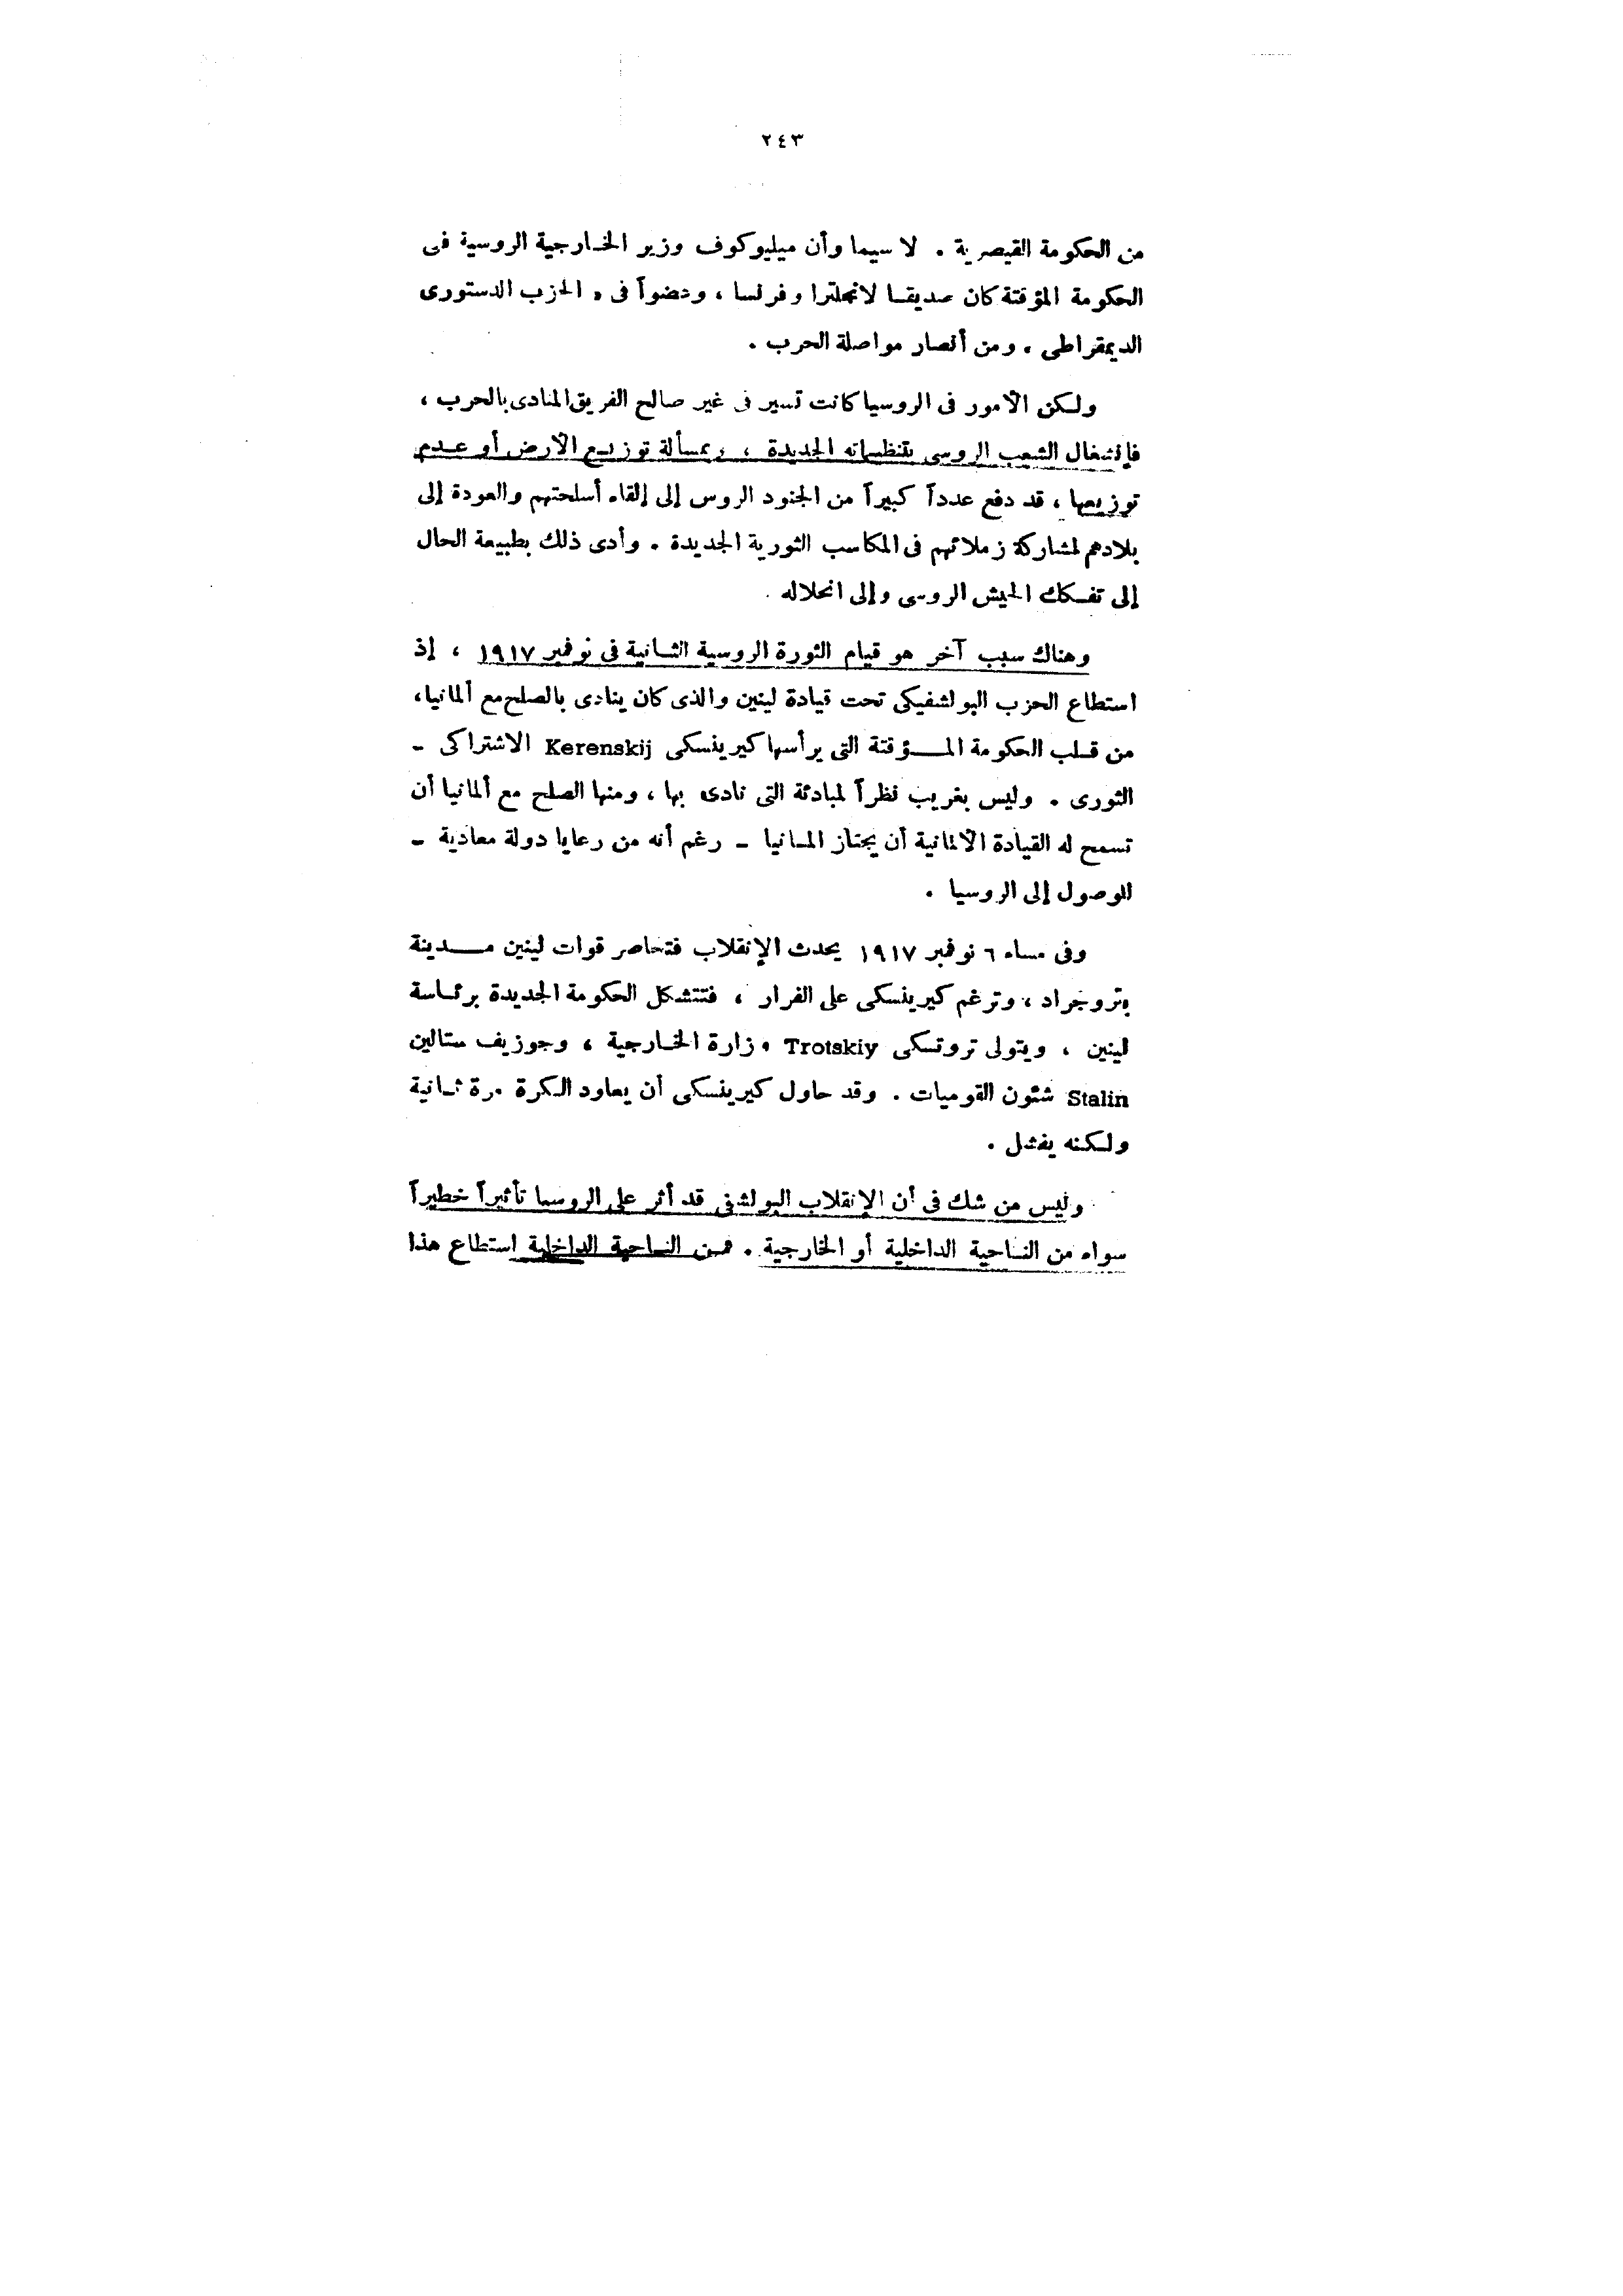 ٢٤٣
من الحكومة القيصرية . لا سيما وأن ميليوكوف وزير الخارجية الروسية فى
الحكومة المؤقتة كان صديقا لانجلترا وفرنسا ، وعضواً فى « الحزب الدستورى
الديمقراطى ، ومن أنصار مواصلة الحرب .
ولكن الأمور فى الروسيا كانت تسير فى غير صالح الفريق المنادى بالحرب ،
فإنشغال الشعب الروسى بتنظيماته الجديدة ، وبمسألة توزيع الأرض أو عدم
توزيعها ، قد دفع عدداً كبيراً من الجنود الروس إلى إلقاء أسلحتهم والعودة إلى
بلادهم لمشاركة زملائهم فى المكاسب الثورية الجديدة . وأدى ذلك بطبيعة الحال
إلى تفكك الجيش الروسى وإلى انحلاله .
وهناك سبب آخر هو قيام الثورة الروسية الثانية فى نوفمبر ١٩١٧ ، إذ
استطاع الحزب البولشفيكى تحت قيادة لينين والذى كان ينادى بالصلح مع ألمانيا ،
من قلب الحكومة المؤقتة التى يرأسها كيرينسكى Kerenskij الاشتراكى -
الثورى . وليس بغريب نظراً لمبادئة التى نادى بها ، ومنها الصلح مع ألمانيا أن
تسمح له القيادة الألمانية أن يجتاز المانيا - رغم أنه من رعايا دولة معادية -
للوصول إلى الروسيا .
وفى مساء ٦ نوفمبر ١٩١٧ يحدث الإنقلاب فتحاصر قوات لينين مدينة
بتروجراد ، وترغم كيرينسكى على الفرار ، فتتشكل الحكومة الجديدة برئاسة
لينين ، ويتولى تروتسكى Trotskiy وزارة الخارجية ، وجوزيف ستالين
Stalin شئون القوميات . وقد حاول كيرينسكى أن يعاود الكرة مرة ثانية
ولكنه يفشل .
وليس من شك فى أن الإنقلاب البولشفى قد أثر على الروسيا تأثيراً خطيراً
سواء من الناحية الداخلية أو الخارجية . فمن الناحية الداخلية استطاع هذا